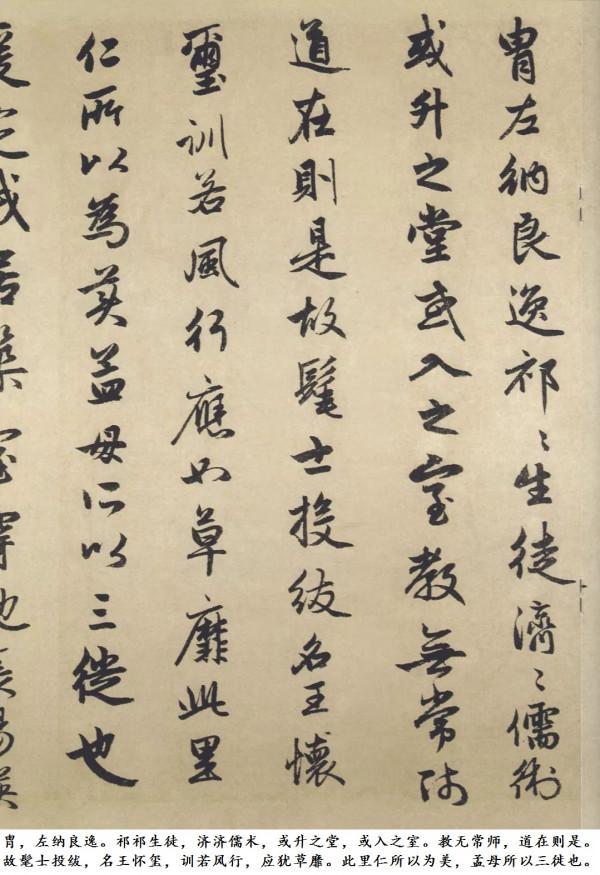 胄左納良逸祁〻生徒濟〻儒術
或升之堂或入之室教無常師
道在則是故髦士投紱名王懷
璽訓若風行應如草靡此里
仁所以為美孟母所以三徙也
爰定我居築室穿池長楊映
胄，左纳良逸。祁祁生徒，济济儒术，或升之堂，或入之室。教无常师，道在则是。
故髦士投绂，名王怀玺，训若风行，应犹草靡。此里仁所以为美，孟母所以三徙也。